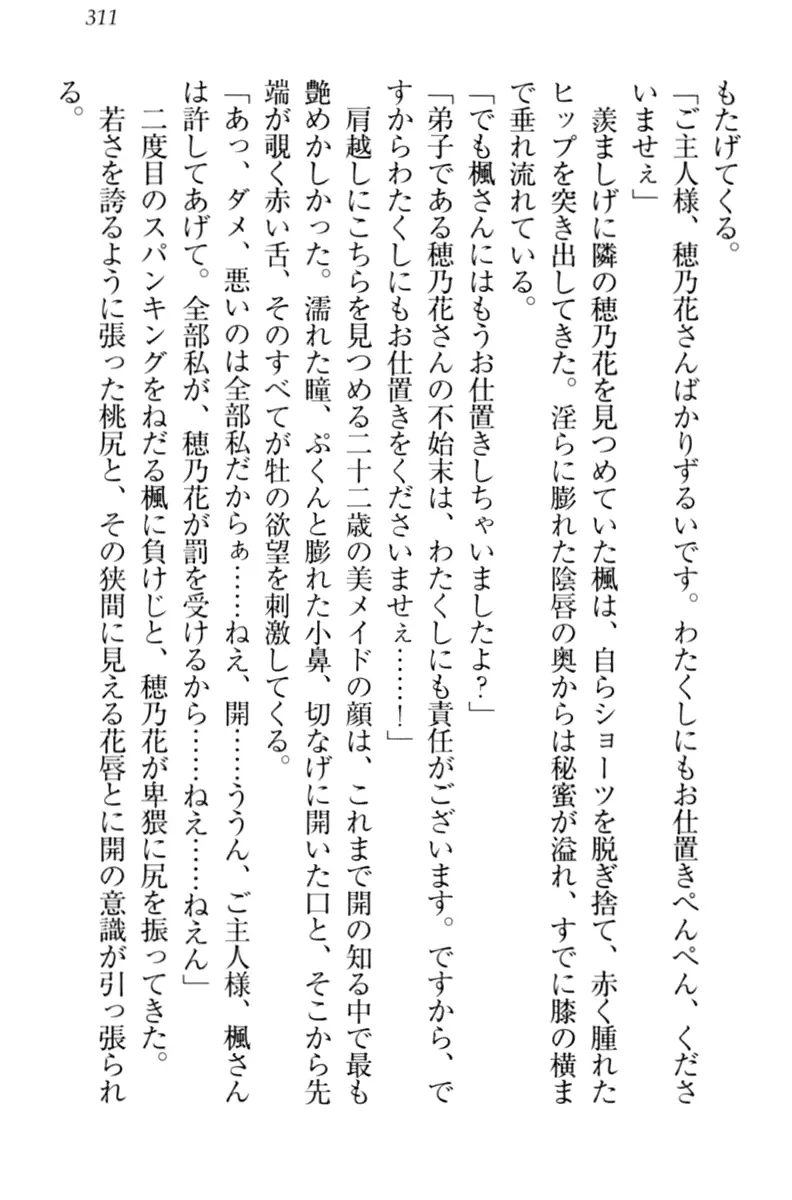 311
もたげてくる。
「ご主人様、穂乃花さんばかりずるいです。わたくしにもお仕置きぺんぺん、くださ
いませぇ」
羨ましげに隣の穂乃花を見つめていた楓は、自らショーツを脱ぎ捨て、赤く腫れた
ヒップを突き出してきた。淫らに膨れた陰唇の奥からは秘蜜が溢れ、すでに膝の横ま
で垂れ流れている。
「でも楓さんにはもうお仕置きしちゃいましたよ？」
「弟子である穂乃花さんの不始末は、わたくしにも責任がございます。ですから、で
すからわたくしにもお仕置きをくださいませぇ……！」
肩越しにこちらを見つめる二十二歳の美メイドの顔は、これまで開の知る中で最も
艶めかしかった。濡れた瞳、ぷくんと膨れた小鼻、切なげに開いた口と、そこから先
端が覗く赤い舌、そのすべてが牡の欲望を刺激してくる。
「あっ、ダメ、悪いのは全部私だからぁ……ねえ、開……ううん、ご主人様、楓さん
は許してあげて。全部私が、穂乃花が罰を受けるから……ねえ……ねえん」
二度目のスパンキングをねだる楓に負けじと、穂乃花が卑猥に尻を振ってきた。
若さを誇るように張った桃尻と、その狭間に見える花唇とに開の意識が引っ張られ
る。